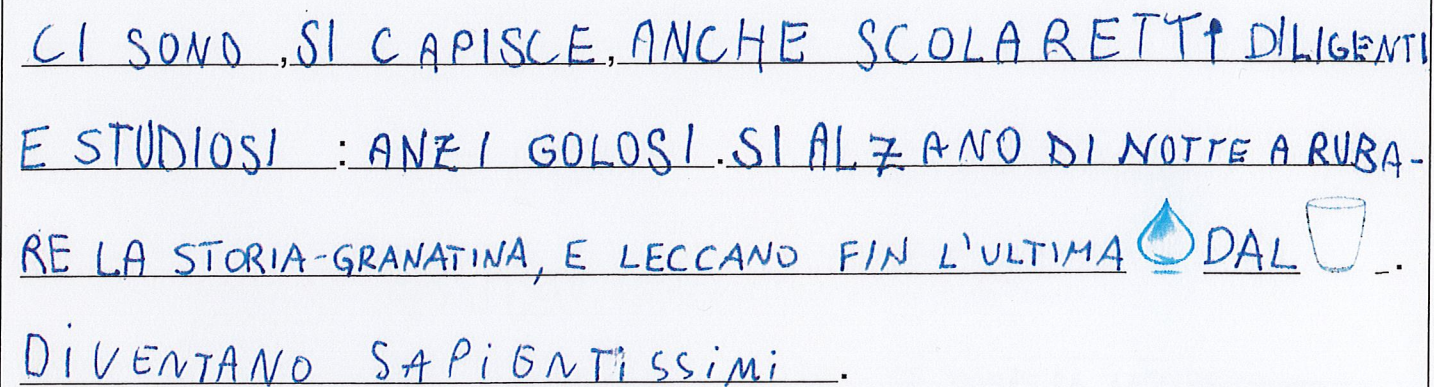 CI SONO ,SI CAPISCE, ANCHE SCOLARETTI DILIGENTI
E STUDIOSI : ANZI GOLOSI. SI ALZANO DI NOTTE A RUBA-
RE LA STORIA-GRANATINA, E LECCANO FIN L'ULTIMA DAL .
DIVENTANO SAPIENTISSIMI .